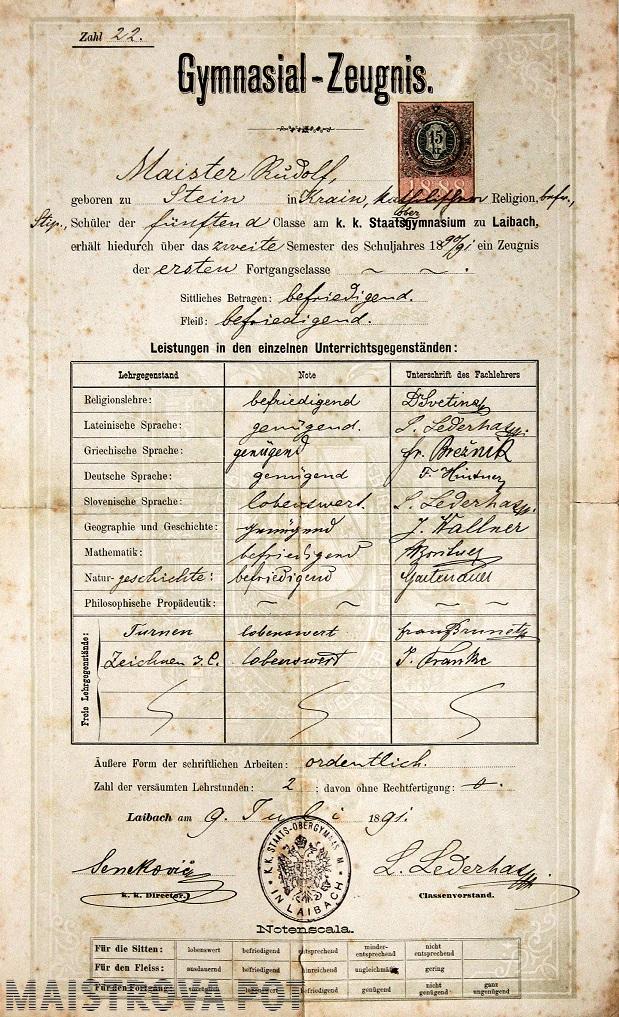 Zahl 22.
Gymnasial-Zeugnis.
15
kr
1888
Maister Rudolf,
geboren zu Stein in Krain, katholischer Religion, befr.,
Stip., Schüler der fünften Classe am k. k. Staats Ober gymnasium zu Laibach,
erhält hiedurch über das zweite Semester des Schuljahres 1890/91 ein Zeugnis
der ersten Fortgangsclasse ~ ~ .
Sittliches Betragen: befriedigend.
Fleiß: befriedigend.
Leistungen in den einzelnen Unterrichtsgegenständen:
Lehrgegenstand Note Unterschrift des Fachlehrers
Religionslehre: befriedigend Dr Svetina
Lateinische Sprache: genügend. L. Lederhas
Griechische Sprache: genügend fr. Brežnik
Deutsche Sprache: genügend F. Hintner
Slovenische Sprache: lobenswert. L. Lederhas
Geographie und Geschichte: genügend J. Wallner
Mathematik: befriedigend
Natur-geschichte: befriedigend
Philosophische Propädeutik: ~ ~ ~ ~
Freie Lehrgegenstände:
Turnen lobenswert franz Brunet
Zeichnen I. C. lobenswert J. Franke
Äußere Form der schriftlichen Arbeiten: ordentlich.
Zahl der versäumten Lehrstunden: 2 ; davon ohne Rechtfertigung: 0.
Laibach am 9. Juli 1891.
K. K. STAATS-OBERGYMNASIUM IN LAIBACH
Senekovič L. Lederhas
k. k. Director. Classenvorstand.
Notenscala.
Für die Sitten: lobenswert befriedigend entsprechend minder-entsprechend nicht entsprechend
Für den Fleiss: ausdauernd befriedigend hinreichend ungleichmäßig gering
Für den Fortgang: vorzüglich lobenswert befriedigend genügend nicht genügend ganz ungenügend
MAISTROVA POT